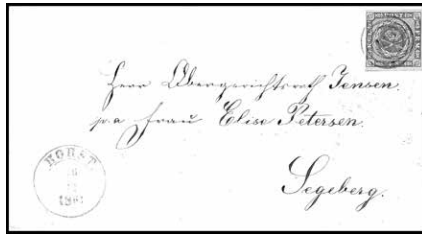 Herr Obergerichtsrath Jensen.
p.a Frau Elise Petersen.
Segeberg.
HORST